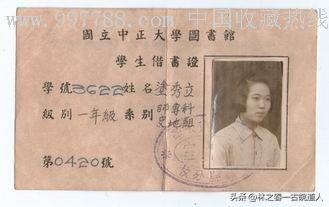 www.997788.com 中国收藏热线
國立中正大學圖書館
學生借書證
學號3622姓名塗秀立
級別一年級系別師專科史地組
第0420號
头条 @林之馨一古院道人